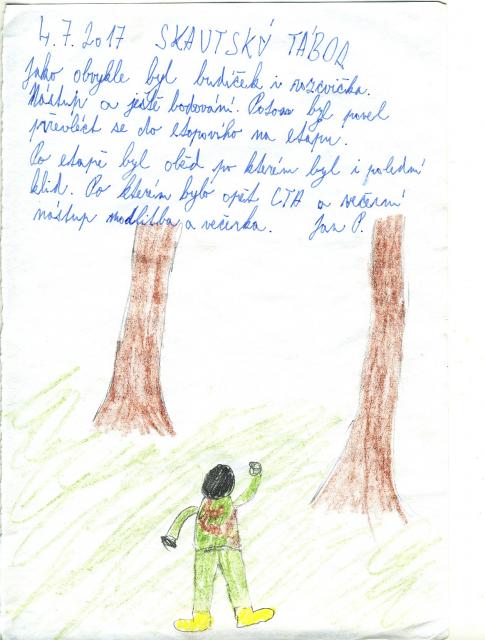 4.7.2017 SKAUTSKÝ TÁBOR
Jako obvykle byl budíček i rozcvička.
Nástup a ještě bodování. Potom byl povel
převléct se do etapového na etapu.
Po etapě byl oběd po kterém byl i polední
klid. Po kterém bylo opět CTH a večerní
nástup modlitba a večerka. Jan P.